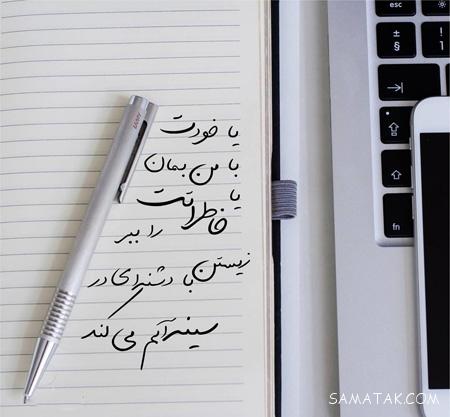 یا خودت
با من بمان
یا خاطراتت
را ببر
زیستن با دشنه‌ای در
سینه می کند
LAMY
esc
±
§
fn
SAMATAK.COM